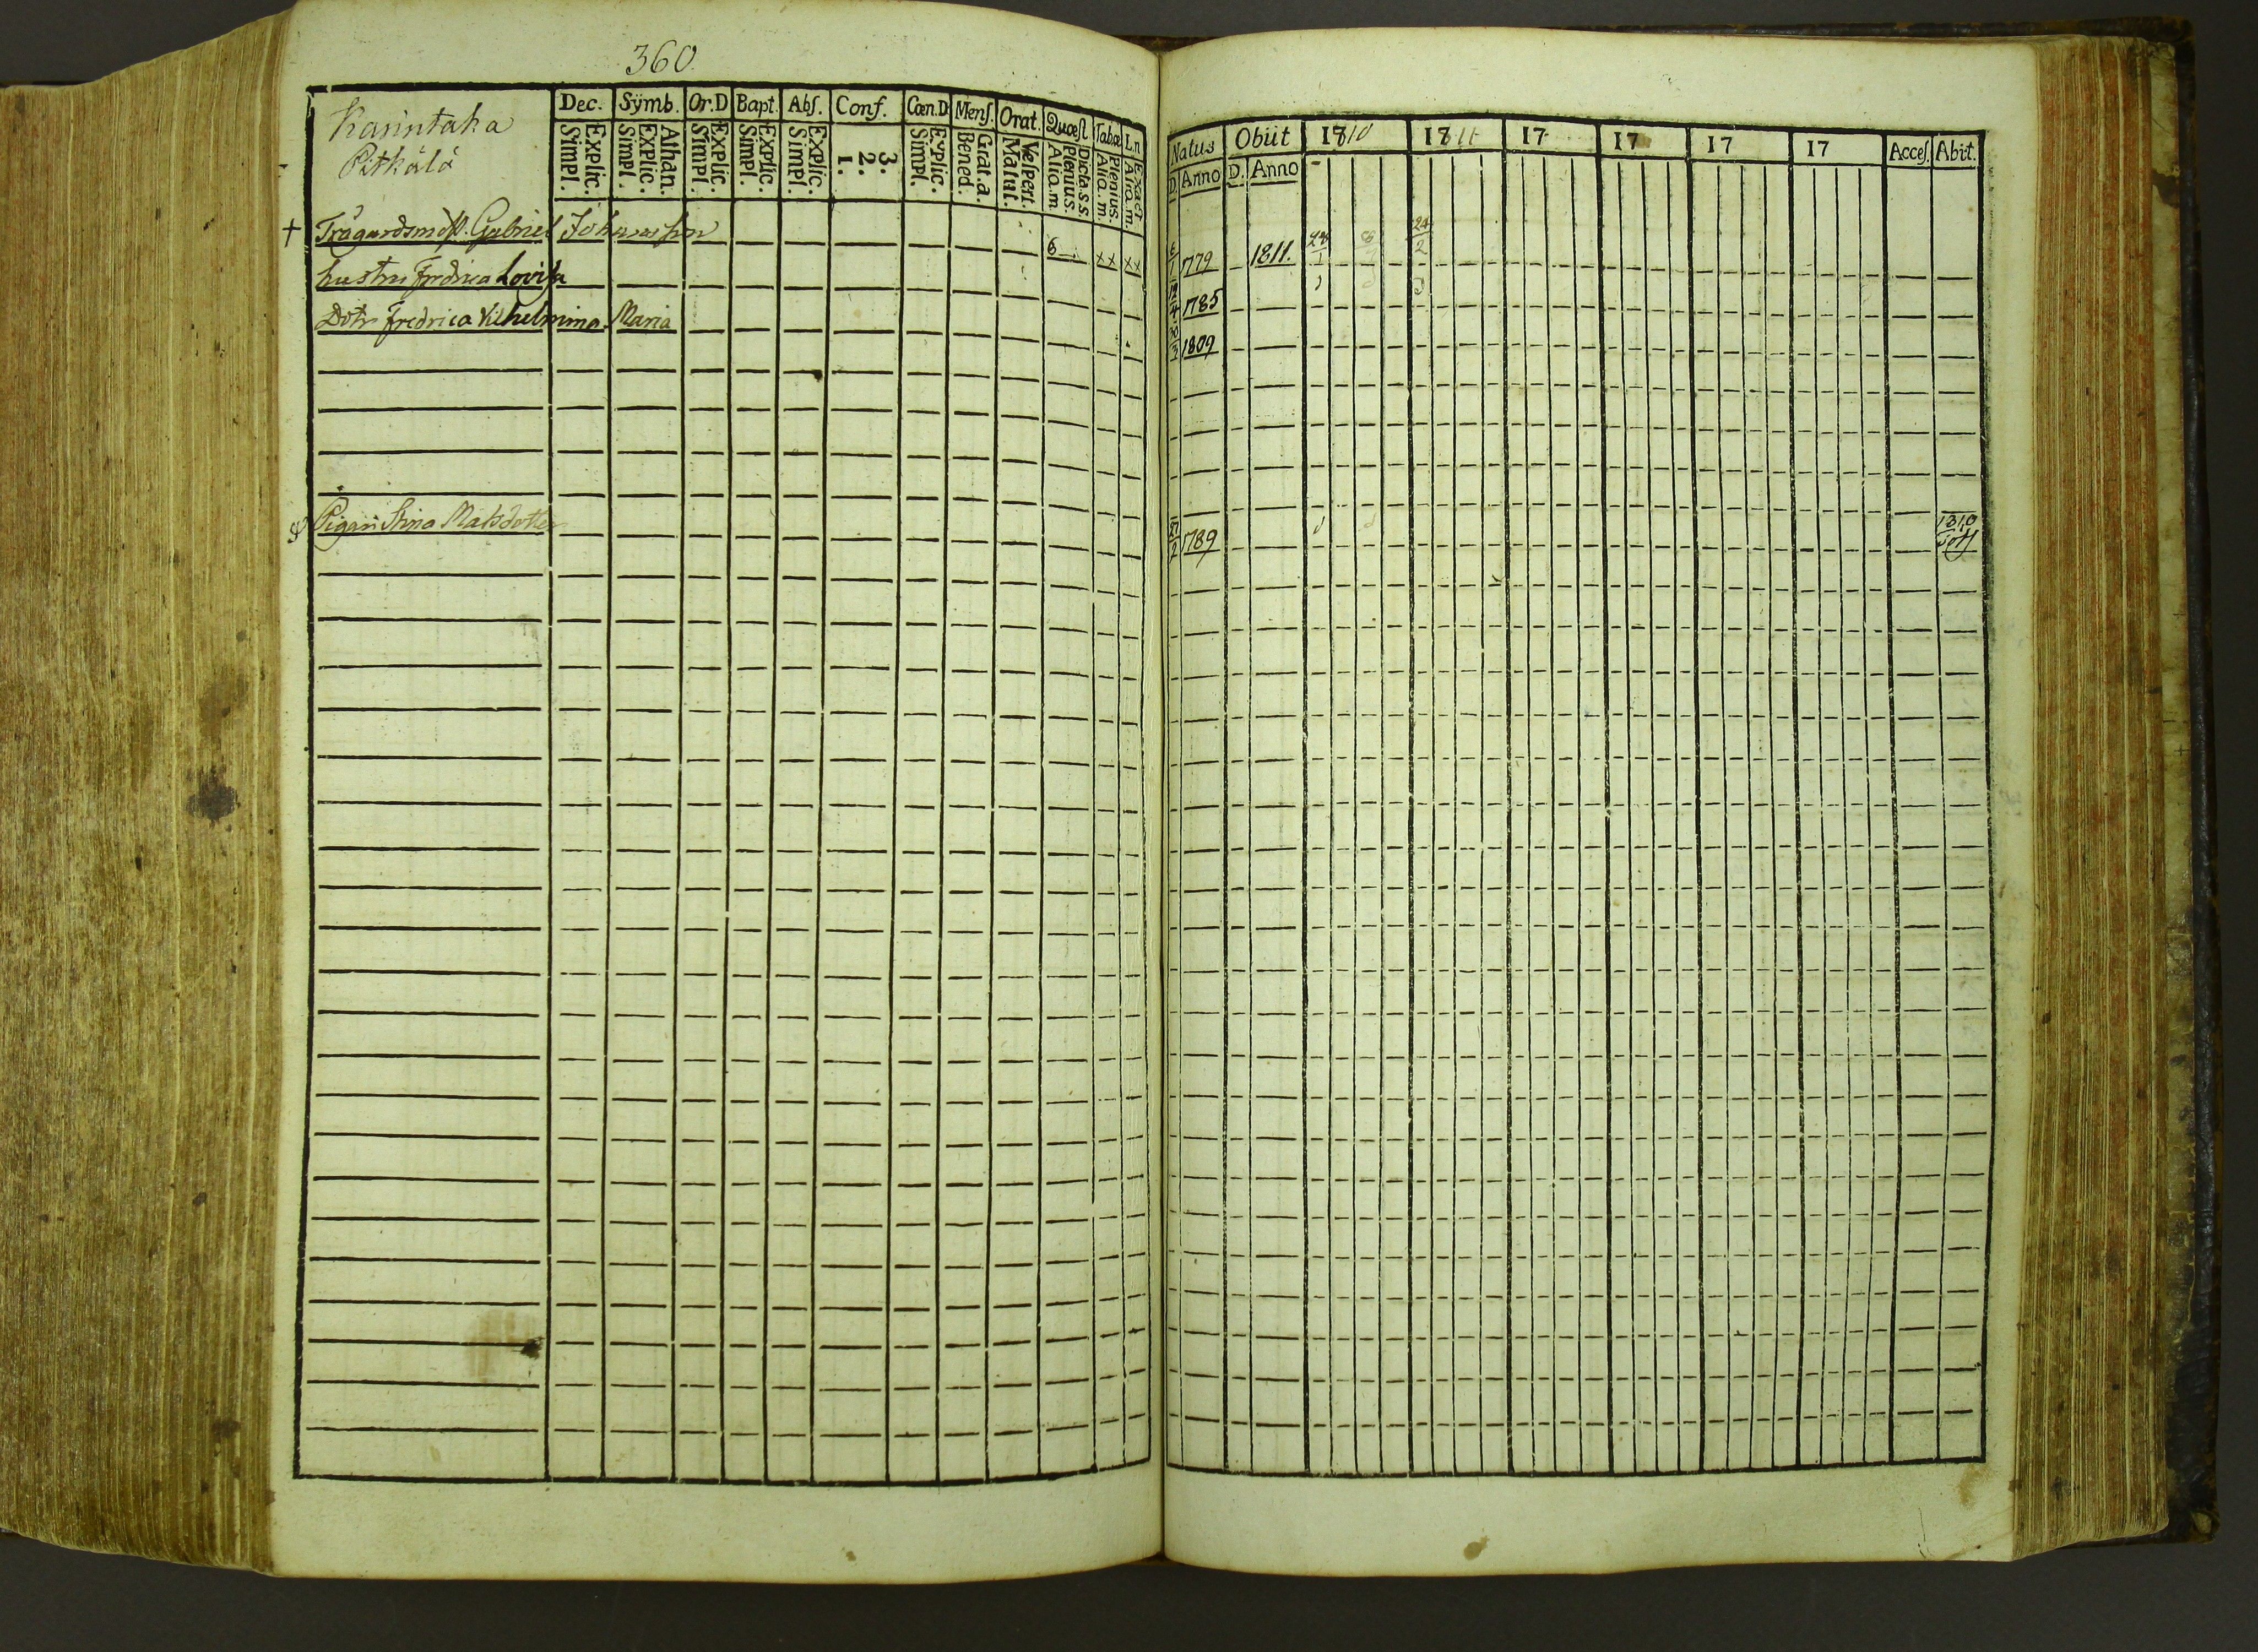 360
Karintaka
Pitkälä
Dec. Sÿmb. Or.D Bapt. Abſ. Conf. Cœn.D Menſ. Orat. Quœſt Tabœ L.n
Explic. Simpl. Athan. Explic. Simpl. Explic. Simpl. Explic. Simpl. Explic. Simpl. 3. 2. 1. Explic. Simpl. Grat.a. Bened. Veſpert. Matut. Dicta.s.s. Plenius. Aliq.m. Plenius. Aliq.m. Exact Aliq.m.
Natus Obiit 1810 1811 17 17 17 17 Acceſ. Abiit.
D. Anno D. Anno
† Trägårdsm Gabriel Johansson 6 xx xx 6/1 1779 1811. 28/1 24/2
hustru Fredrica Lovisa 1785
Dotr Fredrica Vilhelmina Maria 1809
Pigan Stina Matsdotter 27/2 1789 1810